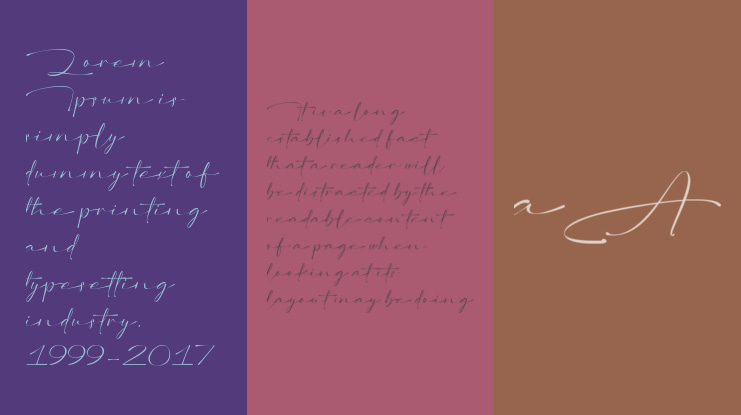 Lorem
Ipsum is
simply
dummy text of
the printing
and
typesetting
industry.
1999-2017
It is a long
established fact
that a reader will
be distracted by the
readable content
of a page when
looking at its
layout may be doing
a A